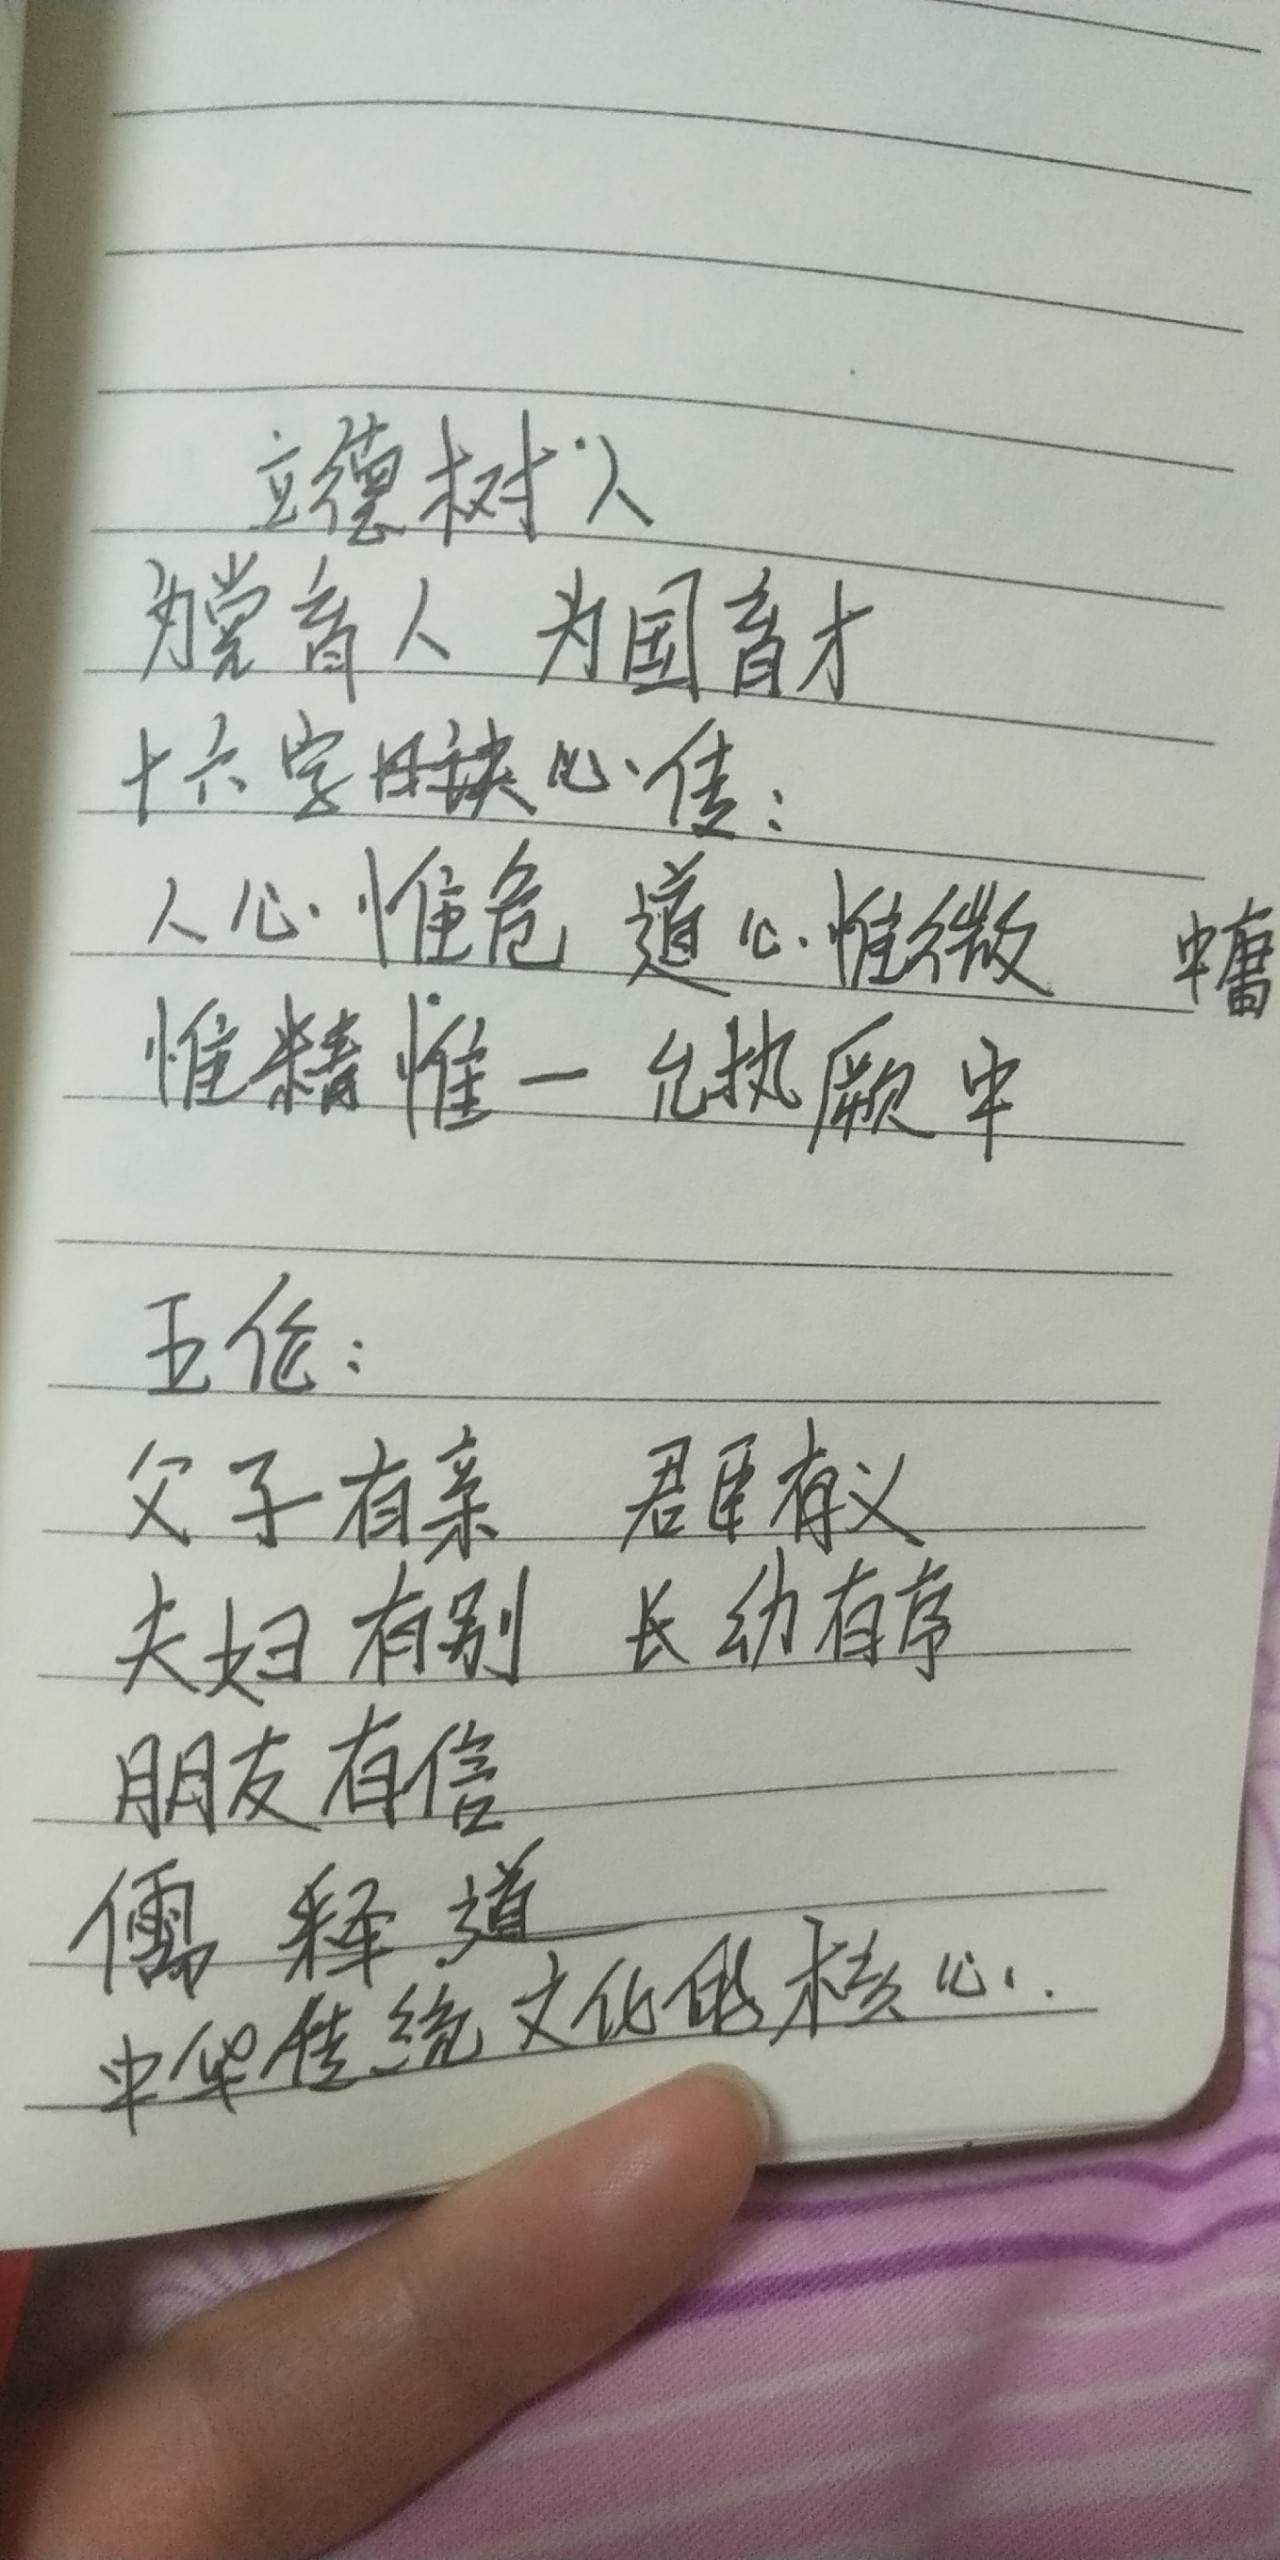 立德树人
为党育人 为国育才
十六字口诀心传:
人心惟危 道心惟微 中庸
惟精惟一 允执厥中
五伦:
父子有亲 君臣有义
夫妇有别 长幼有序
朋友有信
儒 释 道
中华传统文化的核心.